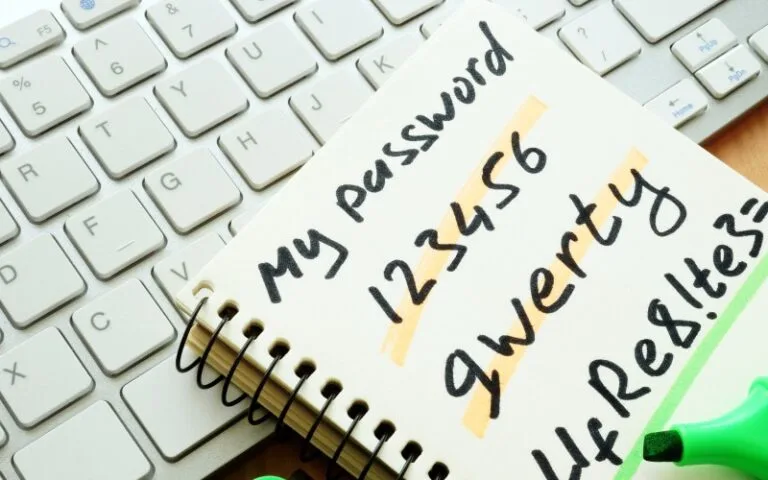 F5
% 5 ^ 6 & 7
R T Y U I
D F G H J K
X C V
? /
PgUp
Home PgDn
My password
123456
qwerty
fRe8!te3=